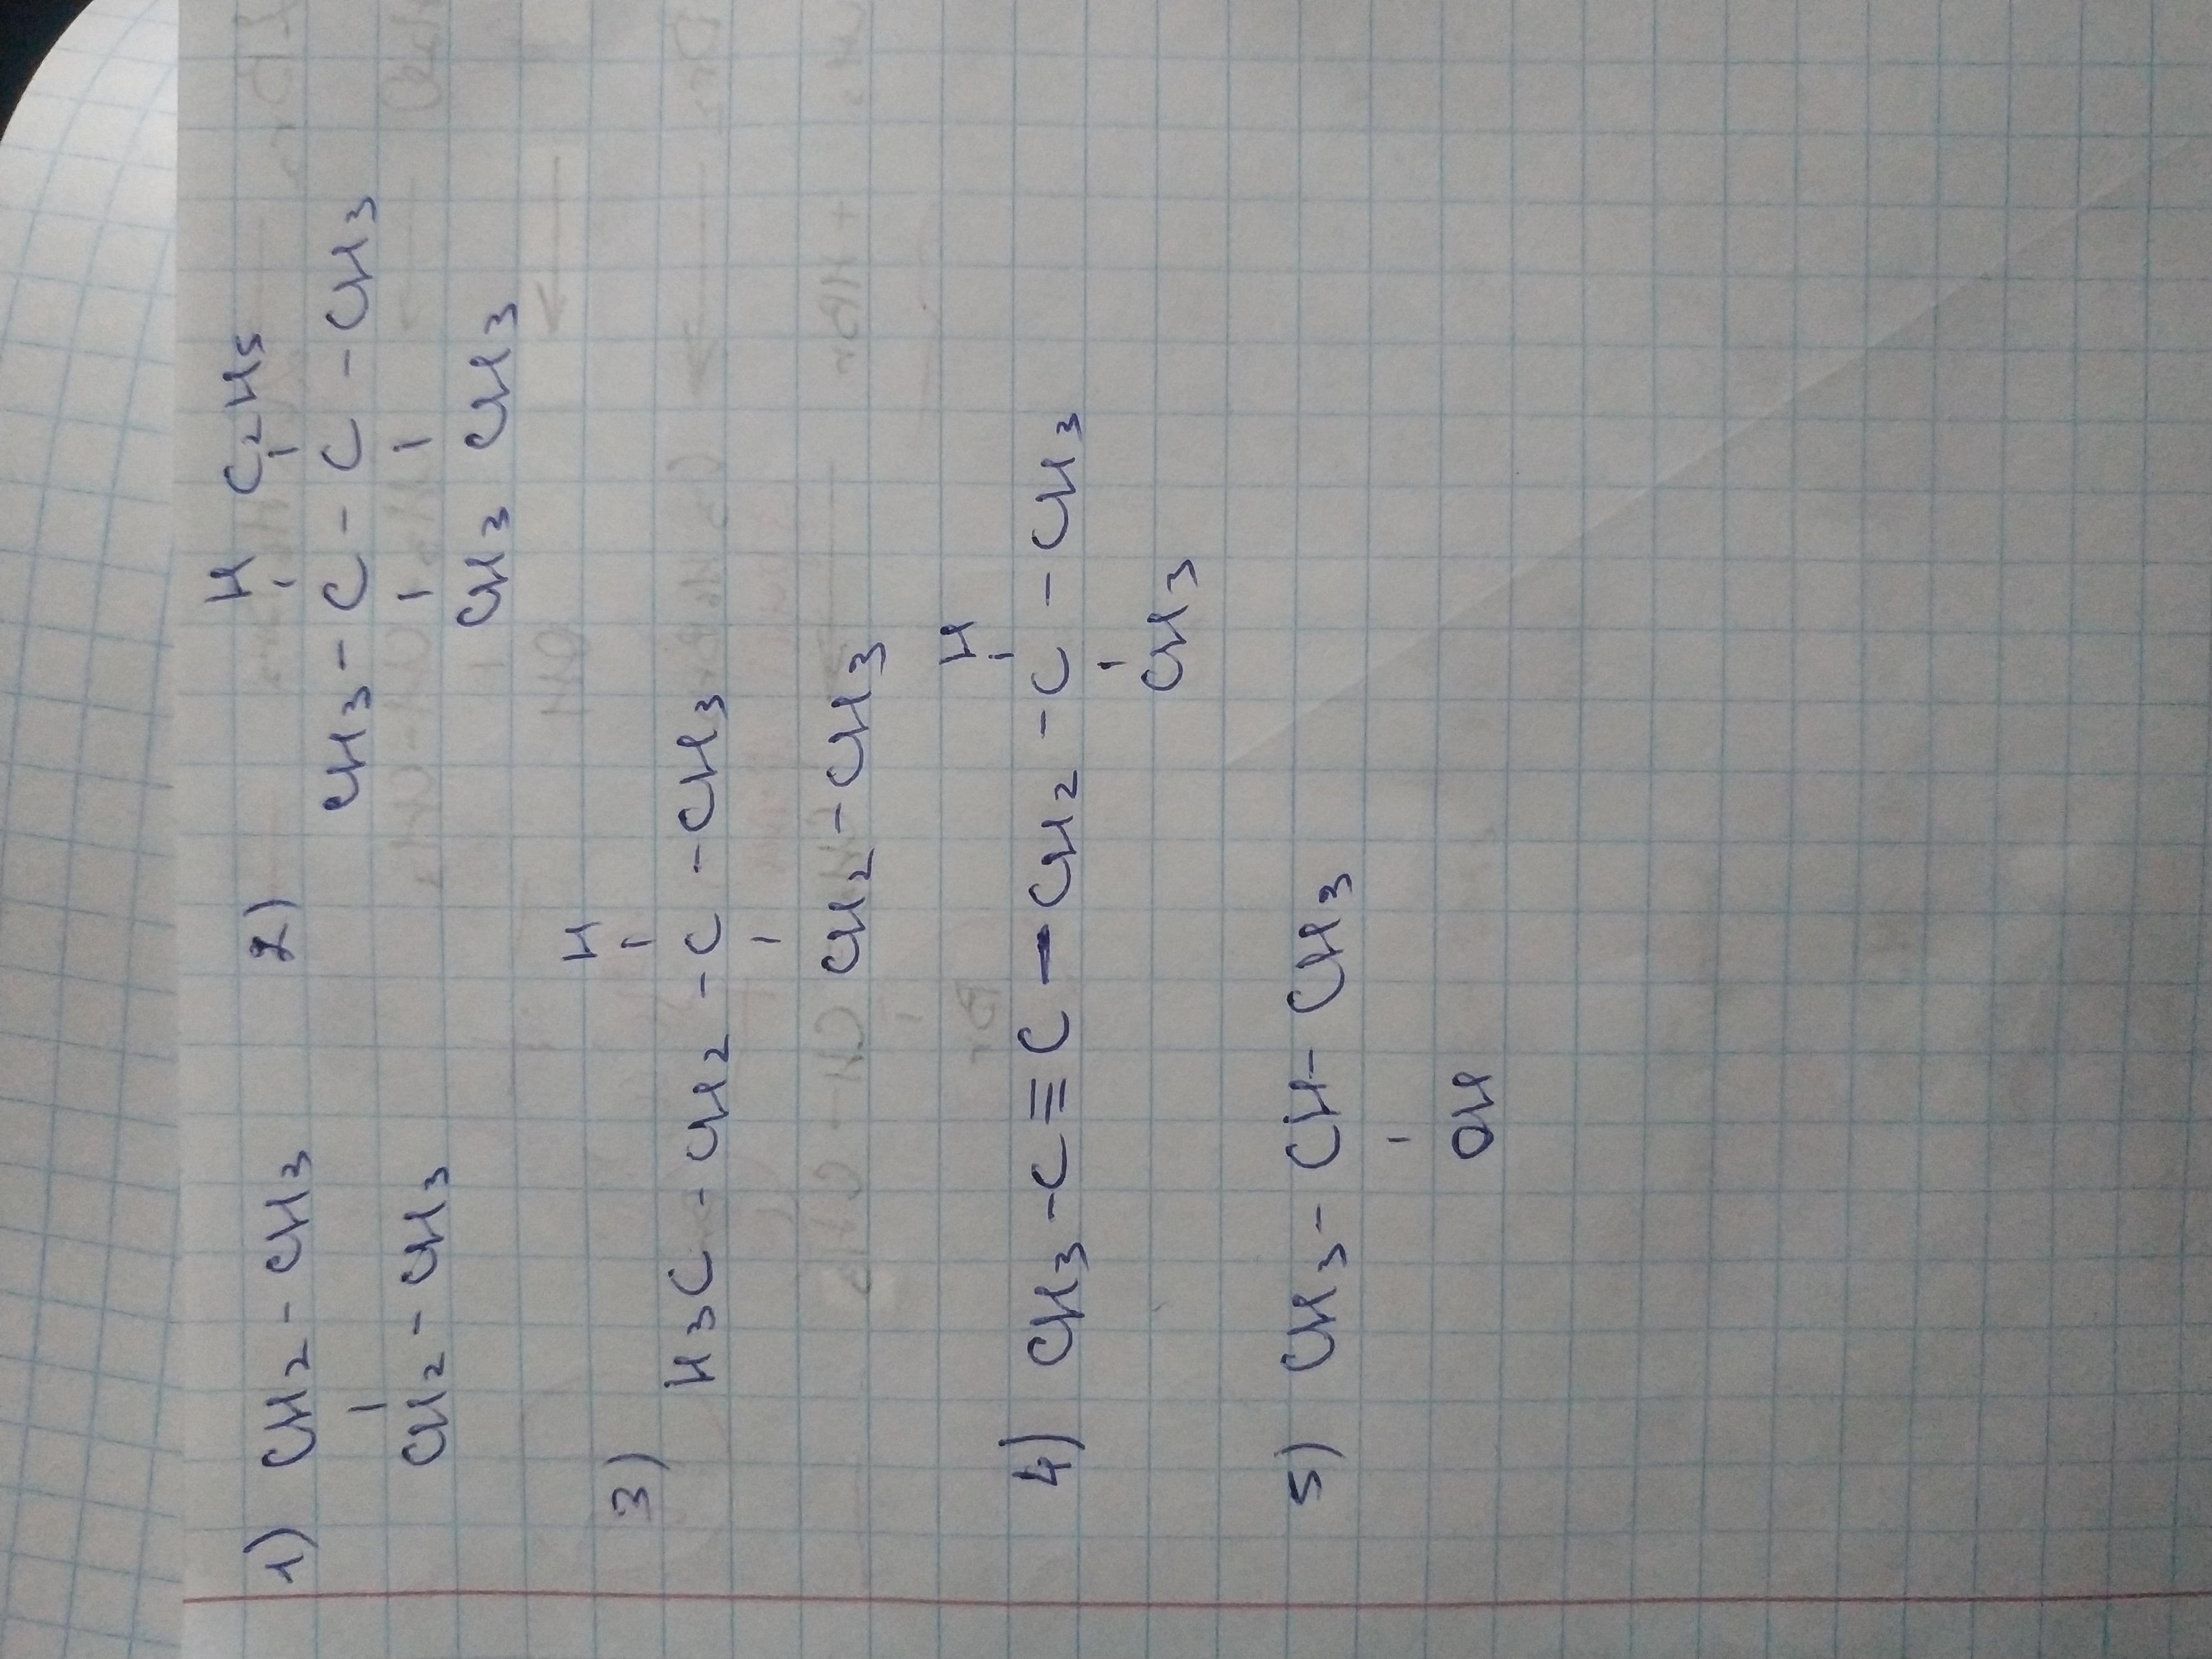 1) CH₂ - CH₃
CH₂ - CH₃
2)
H C₂H₅
CH₃ - C - C - CH₃
CH₃ CH₃
3)
H
H₃C - CH₂ - C - CH₃
CH₂ - CH₃
4)
H
CH₃ - C ≡ C - CH₂ - C - CH₃
CH₃
5) CH₃ - CH - CH₃
OH